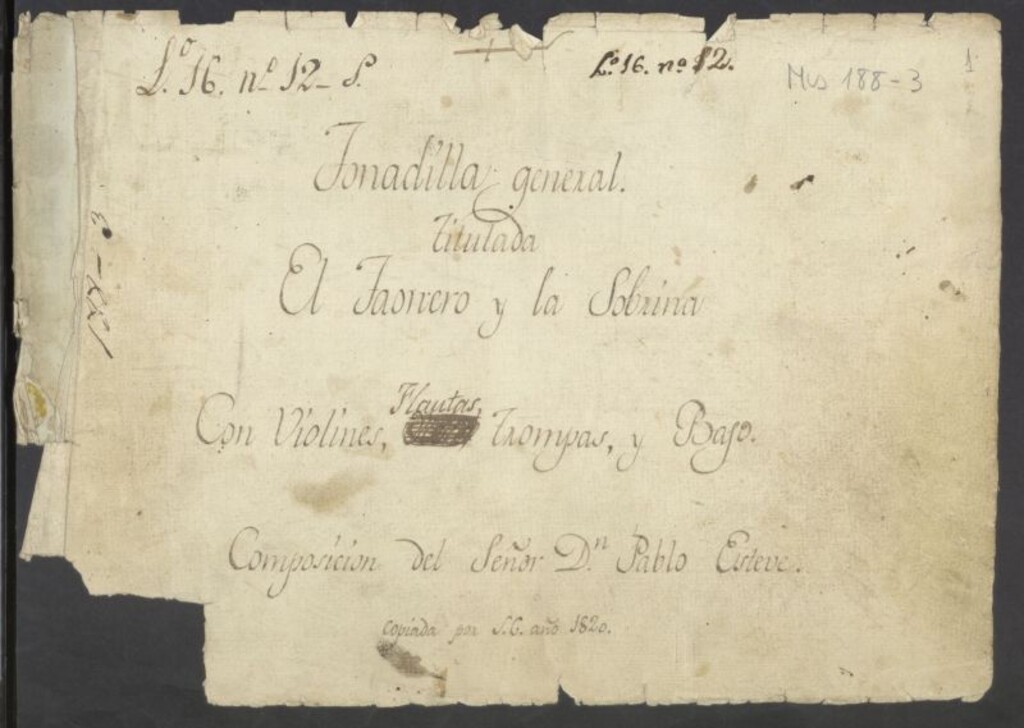 L.º 16. nº 12 - S.
L.º 16. nº 12.
Mus 188-3
1
Tonadilla general.
Titulada
El Taonero y la Sobrina
Flautas,
Con Violines, Trompas, y Bajo.
Composicion del Señor D.n Pablo Esteve.
copiada por S.C. año 1820.